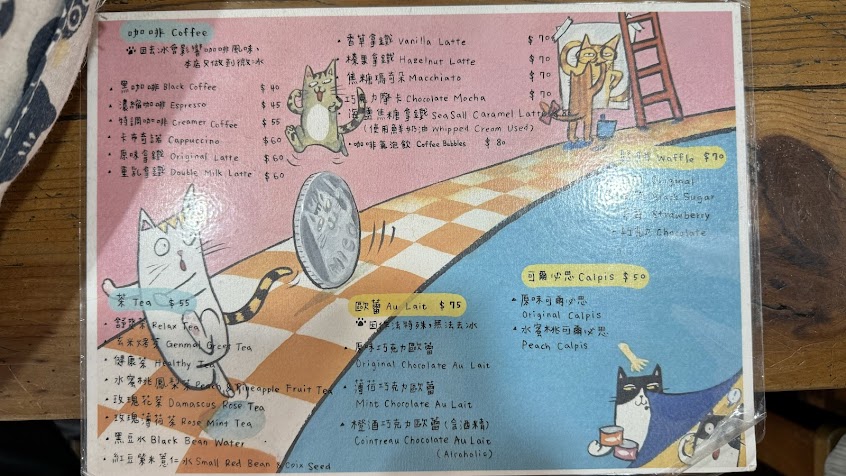 咖啡 Coffee
因去冰會影響咖啡風味,
本店只做到微冰
黑咖啡 Black Coffee $40
濃縮咖啡 Espresso $45
特調咖啡 Creamer Coffee $55
卡布奇諾 Cappuccino $60
原味拿鐵 Original Latte $60
重乳拿鐵 Double Milk Latte $60
香草拿鐵 Vanilla Latte $70
榛果拿鐵 Hazelnut Latte $70
焦糖瑪奇朵 Macchiato $70
巧克力摩卡 Chocolate Mocha $70
海鹽焦糖拿鐵 Sea Sall Caramel Latte
(使用鮮奶油 Whipped Cream Used)
咖啡氣泡飲 Coffee Bubbles $80
Waffle $70
Original
Sugar
Strawberry
Chocolate
茶 Tea $55
Relax Tea
玄米煎茶 Genmai Green Tea
健康茶 Healthy Tea
水蜜桃鳳梨茶 Peach & Pineapple Fruit Tea
玫瑰花茶 Damascus Rose Tea
玫瑰薄荷茶 Rose Mint Tea
黑豆水 Black Bean Water
紅豆紫米薏仁水 Small Red Bean & Coix Seed
歐蕾 Au Lait $75
因作法特殊,無法去冰
原味巧克力歐蕾
Original Chocolate Au Lait
薄荷巧克力歐蕾
Mint Chocolate Au Lait
橙酒巧克力歐蕾(含酒精)
Cointreau Chocolate Au Lait
(Alcoholic)
可爾必思 Calpis $50
原味可爾必思
Original Calpis
水蜜桃可爾必思
Peach Calpis